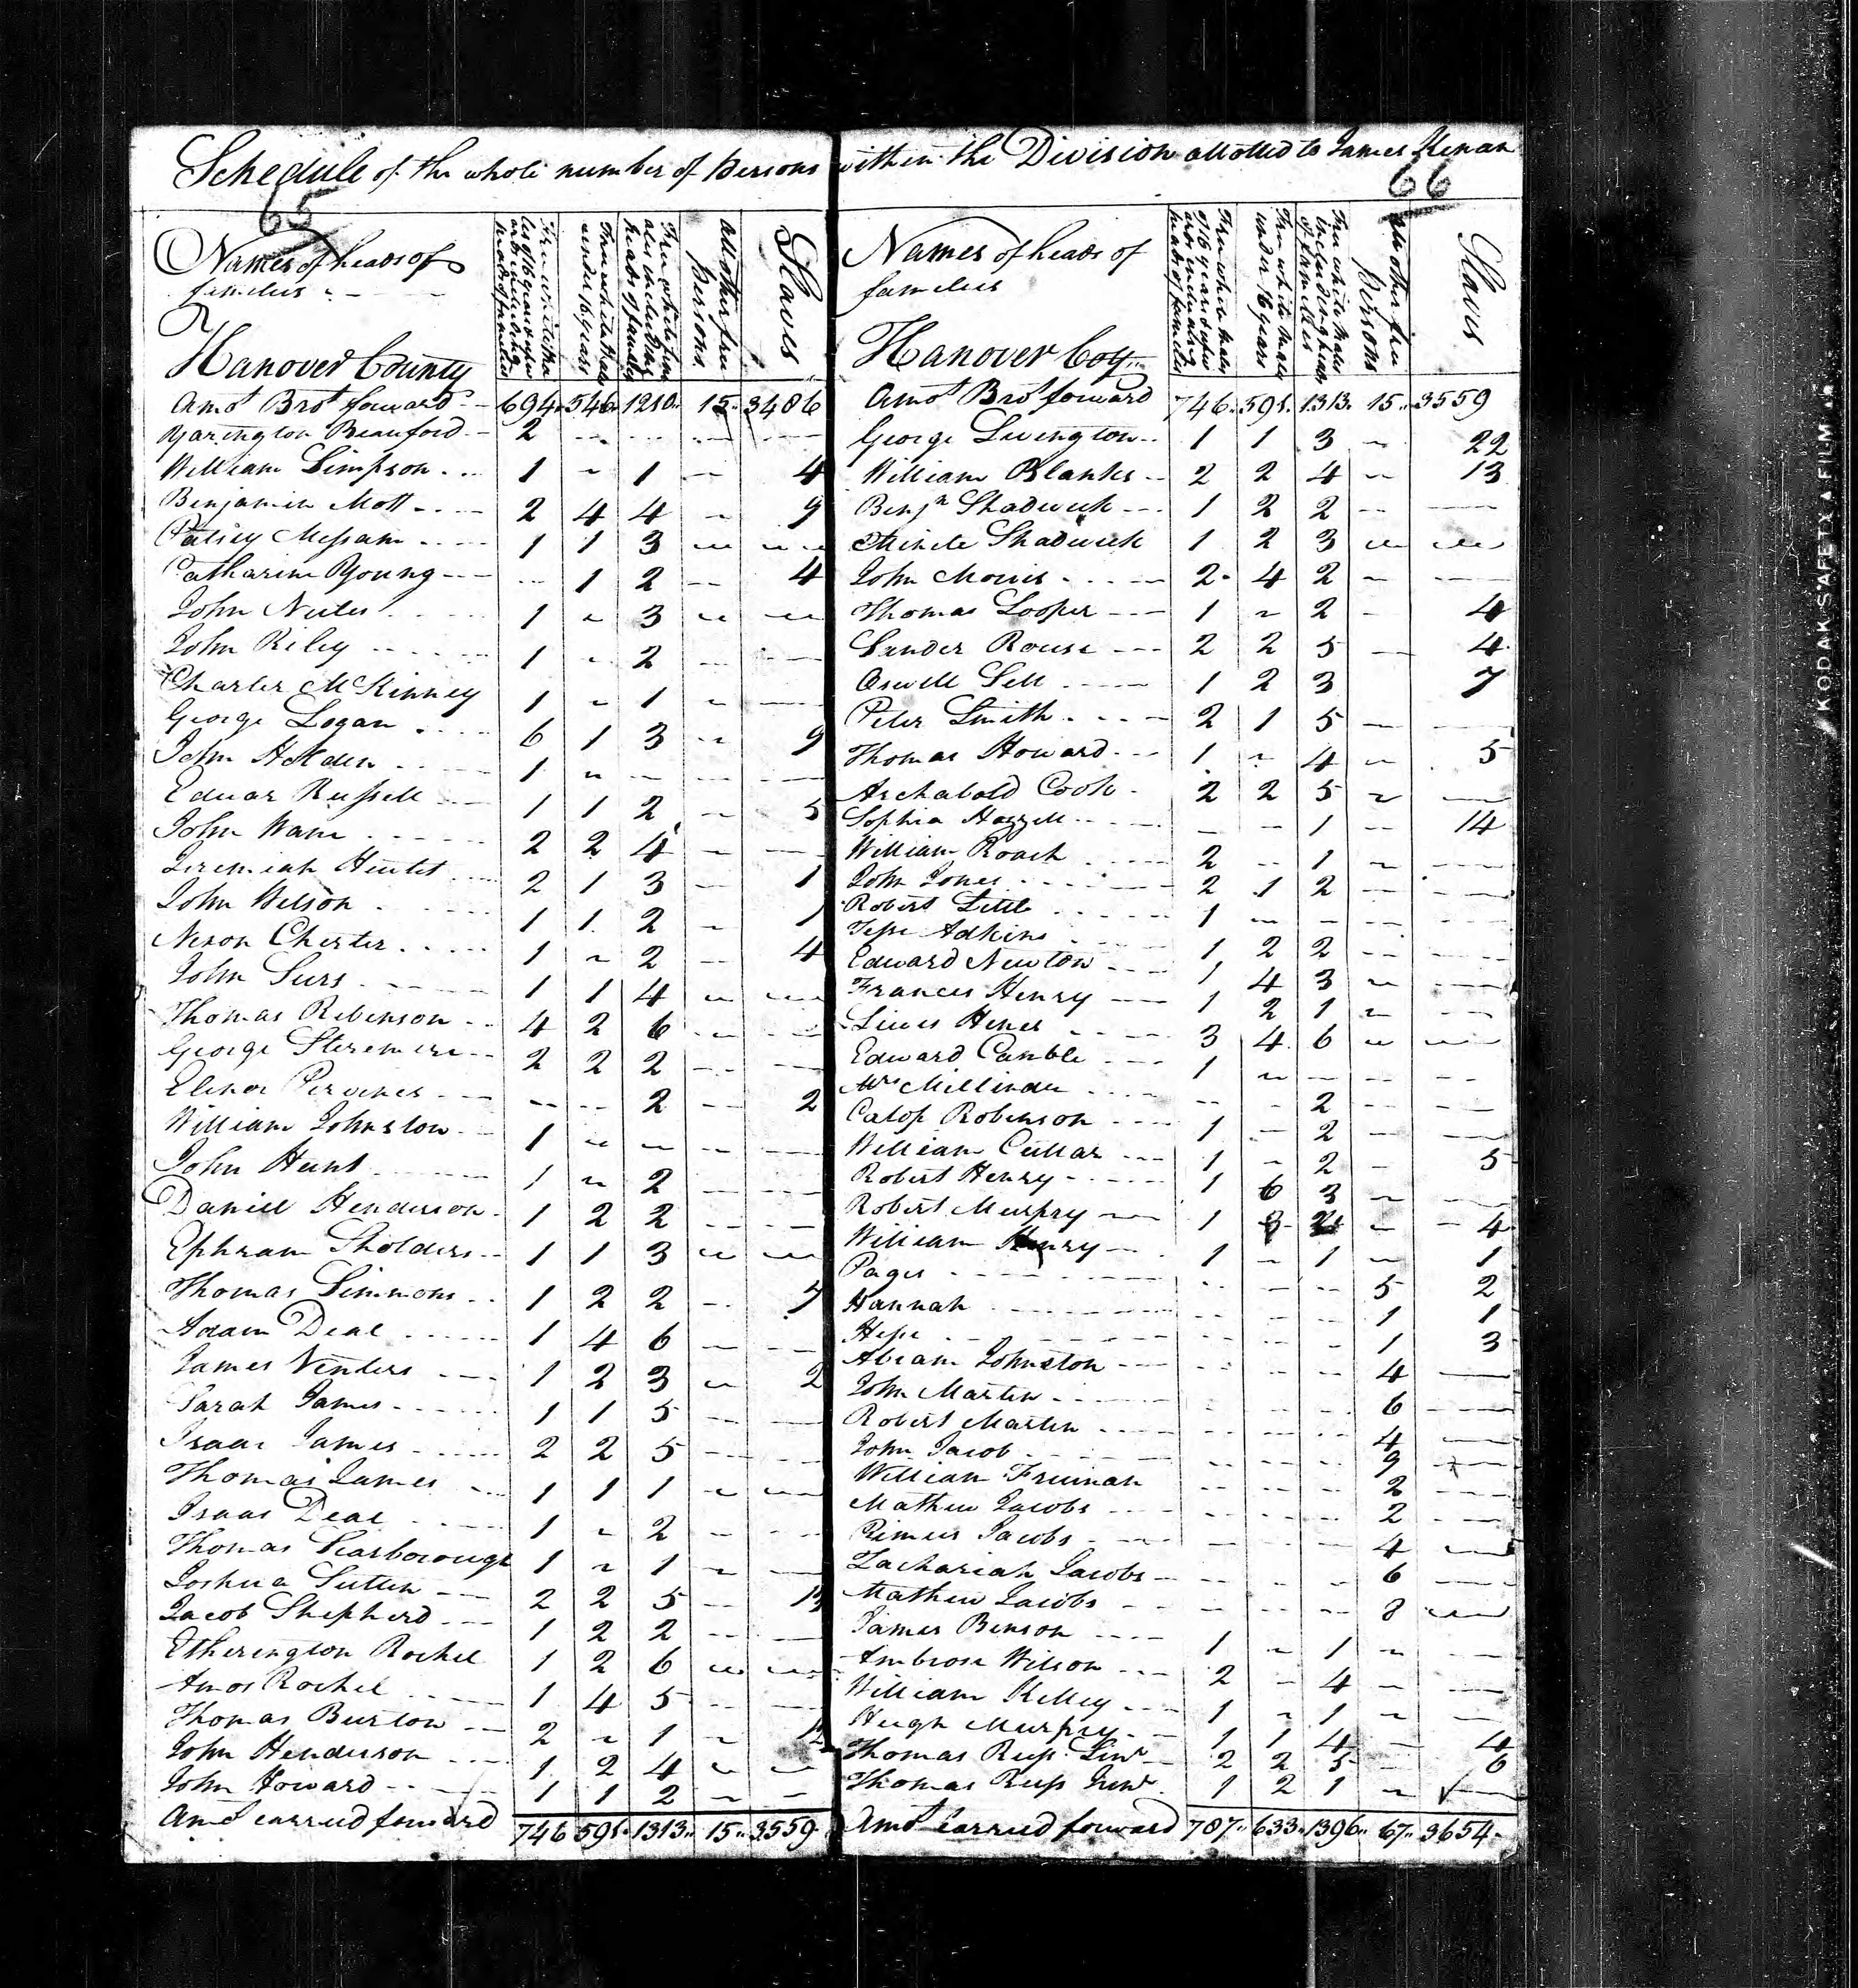 Schedule of the whole number of Persons within the Division allotted to James Kenan
65
Names of heads of families
Free white Males of 16 years & upwards including heads of families
Free white Males under 16 years
Free white females including heads of families
All other free Persons
Slaves
Hanover County
Amot Brot forward 694 546 1210 15 3486
Yarington Beauford 2
William Simpson 1 1 4
Benjamin Mott 2 4 4 9
Patsey Messam 1 1 3
Catharine Young 1 2 4
John Nutes 1 3
John Riley 1 2
Charles McKinney 1 1
George Logan 6 1 3 9
John Holden 1
Edwar Russell 1 1 2 5
John Ware 2 2 4
Jeremiah Hewlet 2 1 3 1
John Wilson 1 1 2 1
Nixon Chester 1 2 4
John Surs 1 1 4
Thomas Robinson 4 2 6
George 2 2 2
Elenor 2 2
William Johnston 1
John Hunt 1 2
Daniel Henderson 1 2 2
Ephram Sholders 1 1 3
Thomas Simmons 1 2 2 7
Adam Deal 1 4 6
James Venters 1 2 3 2
Sarah James 1 1 5
Isaac James 2 2 5
Thomas James 1 1 1
Isaac Deal 1 2
Thomas Scarborough 1 1
Joshua Sutten 2 2 5
Jacob Shepherd 1 2 2
Etherington Rochel 1 2 6
Amos Rochel 1 4 5
Thomas Burton 2 1
John Henderson 1 2 4
John Howard 1 1 2
Amot carried forward 746 591 1313 15 3559
66
Names of heads of families
Free white Males of 16 years & upwards including heads of families
Free white Males under 16 years
Free white Males including heads of families
All other free Persons
Slaves
Hanover Coy
Amot Brot forward 746 591 1313 15 3559
George Livington 1 1 3 22
William Blanks 2 2 4 13
Benjn Shadwick 1 2 2
Shadwick 1 2 3
John Morris 2 4 2
Thomas Looper 1 2 4
Sander Rouse 2 2 5 4
Oswell Sell 1 2 3 7
Peter Smith 2 1 5
Thomas Howard 1 4 5
Archabold Cook 2 2 5
Sophia Hazzell 1 14
William Roach 2 1
John Jones 2 1 2
Robert Little 1
Jesse Adkins 1 2 2
Edward Newton 1 4 3
Frances Henry 1 2 1
Liwes Henes 3 4 6
Edward Camble 1
Mrs Millender 2
Calop Robenson 1 2
William Cullar 1 2 5
Robert Henry 1 6 3
Robert Murpry 1 3 2 4
William Henry 1 1 1
Pages 5 2
Hannah 1 1
Hesse 1 3
Abram Johnston 4
John Martin 6
Robert Martin 4
John Jacob 9
William Fruiman 2
Mathew Jacobs 2
Rimus Jacobs 4
Zachariah Jacobs 6
Mathew Jacobs 8
James Benson 1 1
Ambrose Wilson 2 4
William Kelley 1 1
Hugh Murpry 1 1 4 4
Thomas Russ Sinr 2 2 5 6
Thomas Russ Junr 1 2 1
Amot carried forward 787 633 1396 67 3654
KODAK SAFETY FILM